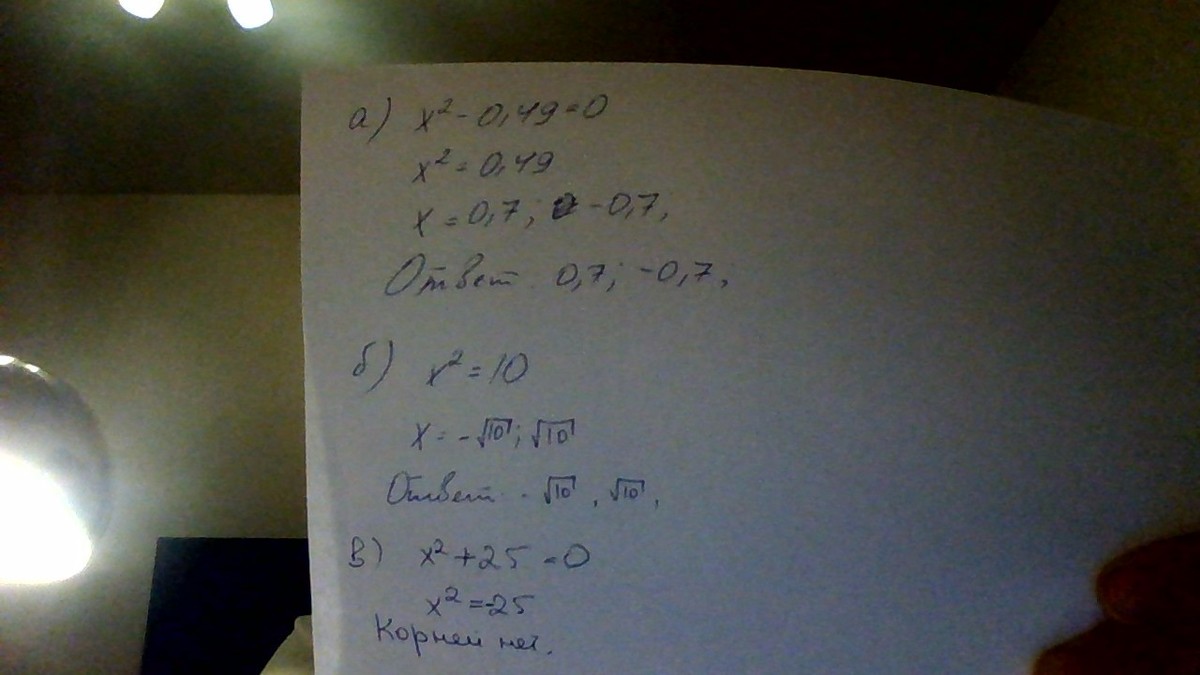 а) x² - 0,49 = 0
x² = 0,49
x = 0,7; -0,7,
Ответ 0,7; -0,7,
б) x² = 10
x = -√10; √10
Ответ. -√10, √10,
в) x² + 25 = 0
x² = -25
Корней нет.